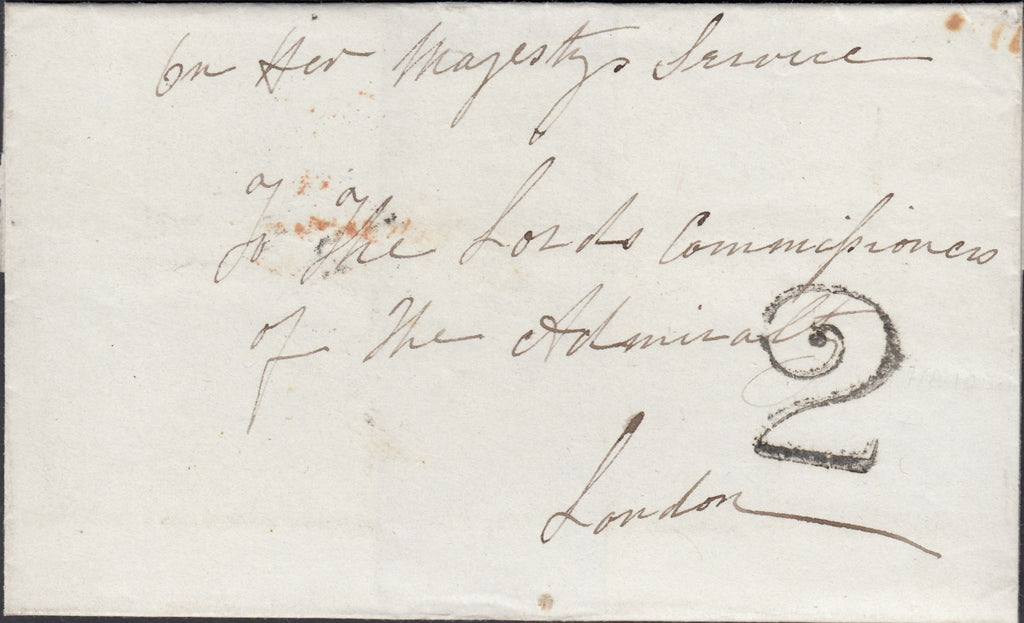 On Her Majestys Service
To The Lords Commissioners
of The Admiralty
2
London